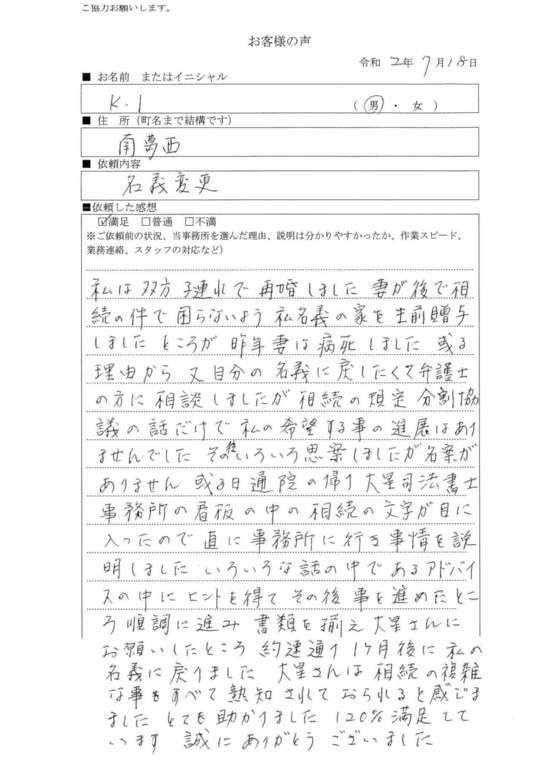 ご協力お願いします。
お客様の声
令和 2年 7月18日
■ お名前 またはイニシャル
K.I
( 男 ・ 女 )
■ 住 所(町名まで結構です)
南夢西
■ 依頼内容
名義変更
■依頼した感想
☑満足 □普通 □不満
※ご依頼前の状況、当事務所を選んだ理由、説明は分かりやすかったか、作業スピード、
業務連絡、スタッフの対応など)
私は 双方 子連れで 再婚しました 妻が後で相
続の件で 困らないよう 私名義の家を生前贈与
しました ところが 昨年妻は 病死しました 或る
理由から 又自分の 名義に戻したくて弁護士
の方に 相談しましたが 相続の規定 分割協
議の話だけで 私の希望する事の進展はあり
ませんでした その後いろいろ思案しましたが名案が
ありません 或る日通院の帰り 大星司法書士
事務所の看板の中の 相続の文字が目に
入ったので 直に事務所に行き事情を説
明しました いろいろな話の中で あるアドバイ
スの中に ヒントを得て その後 事を進めたとこ
ろ順調に進み 書類を揃え 大星さんに
お願いしたところ 約束通り 1ケ月後に 私の
名義に戻りました 大星さんは 相続の複雑
な事をすべて 熟知されて おられると感じま
ました とても助かりました 120%満足して
います 誠に ありがとう ございました